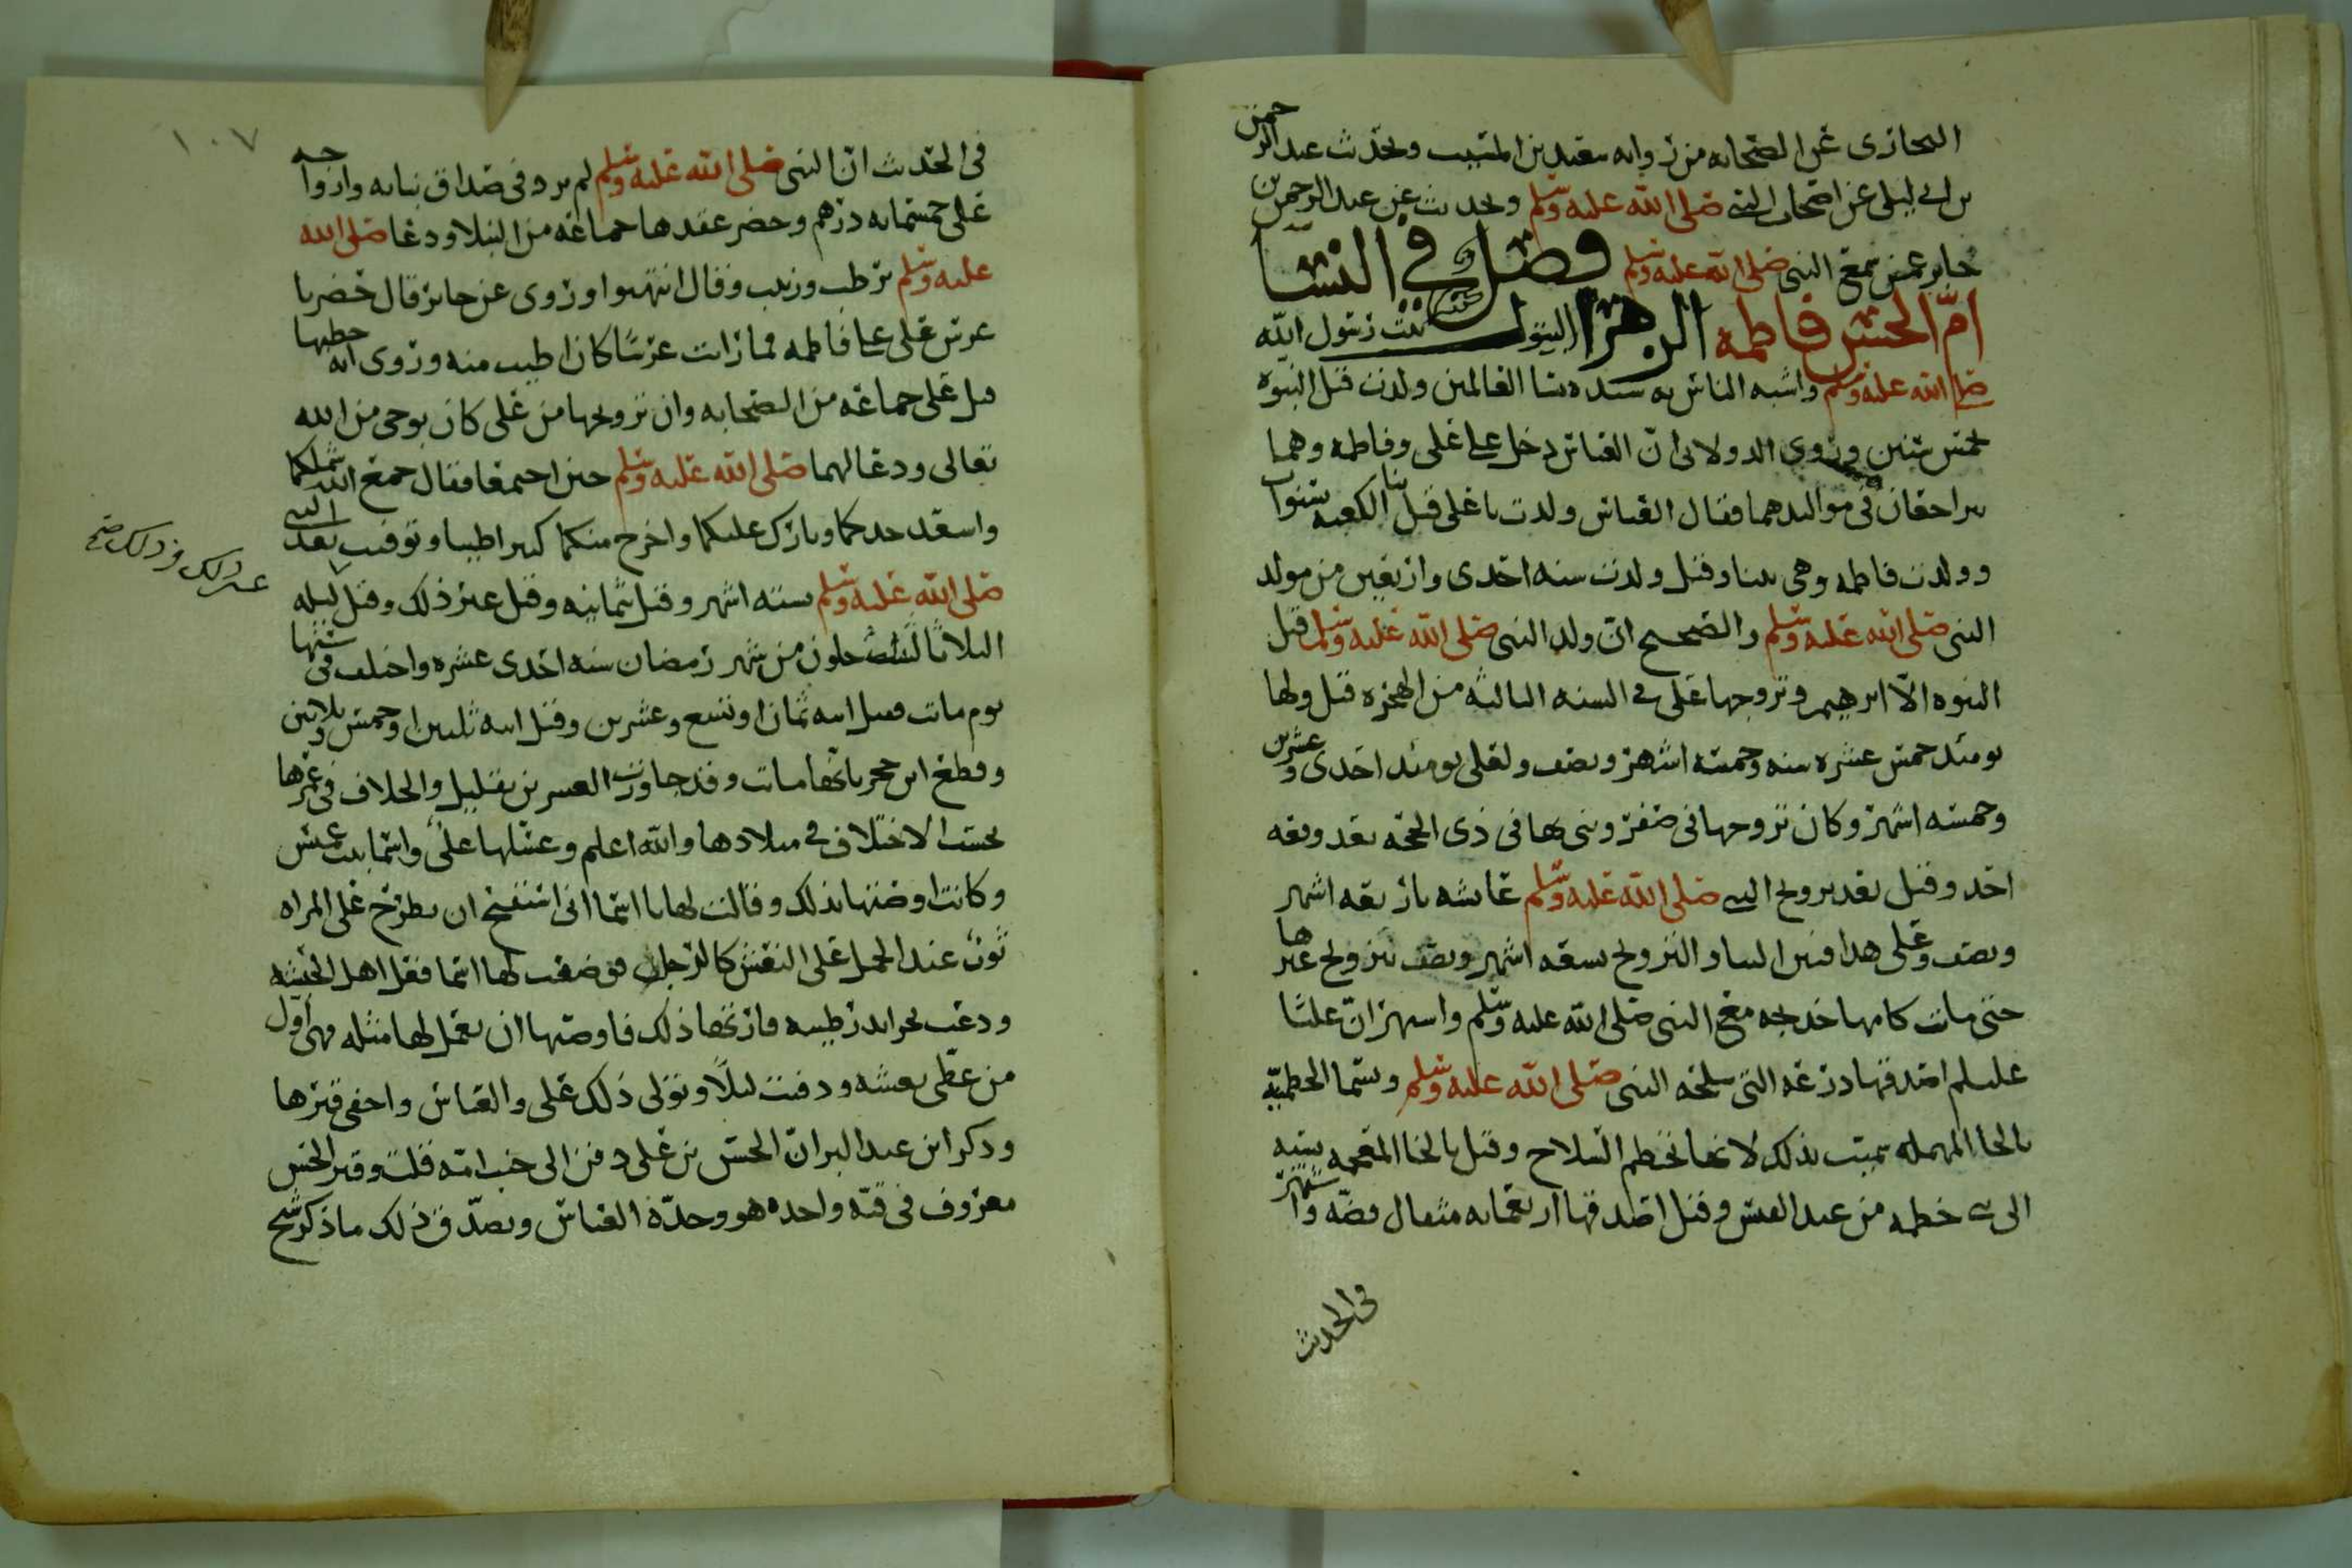 البخاري عن الصحابه من رواية سعيد بن المسيب وبحديث عبد الرحمن
بن ابي ليلى عن اصحاب النبي صلى الله عليه وسلم وبحديث عن عبد الرحمن بن
جابر عمن سمع النبي صلى الله عليه وسلم فصل في النسا
امّ الحسن فاطمه الزهرا البتول بنت رسول الله
صلى الله عليه وسلم واشبه الناس به سيده نسا العالمين ولدت قبل النبوه
بخمس سنين وروى الدولابي انّ العباس دخل على علي وفاطمه وهما
يتراجعان في مواليدهما فقال العباس ولدت يا علي قبل بنا الكعبه بسنوات
وولدت فاطمه وهي تبنا وقيل ولدت سنه احدى واربعين من مولد
النبي صلى الله عليه وسلم والصحيح انّ ولد النبي صلى الله عليه وسلم قبل
النبوه الّا ابرهيم وتزوجها علي في السنه الثالثه من الهجره قيل ولها
يومئذ خمس عشره سنه وخمسه اشهر ونصف ولعلي يومئذ احدى وعشرين
وخمسه اشهر وكان تزوجها في صفر وبنى بها في ذي الحجّه بعد وقعه
احد وقيل بعد تزويج النبي صلى الله عليه وسلم عايشه باربعه اشهر
ونصف وعلى هذا فبين البنا والتزويج سبعه اشهر ونصف تزويج غيرها
حتى ماتت كامها خديجه مع النبي صلى الله عليه وسلم واشتهر انّ عليّا
عليلم اصدقها درعه التي سلحه النبي صلى الله عليه وسلم وتسما الحطميّه
بالحا المهمله سميت بذلك لانها تحطم السلاح وقيل بالخا المعجمه نسبه
الى خطمه من عبد القيس وقيل اصدقها اربعمايه مثقال فضّه واشتهر
في الحديث
١٠٧
في الحديث انّ النبي صلى الله عليه وسلم لم يزد في صداق بناته وازواجه
على خمسمايه درهم وحضر عقدها جماعه من النبلا ودعا صلى الله
عليه وسلم برطب وزبيب وقال انتهبوا وروى عن جابر قال حضرنا
عرس علي على فاطمه فما رايت عرسًا كان اطيب منه وروى انه خطبها
قبل علي جماعه من الصحابه وان تزويجها من علي كان بوحي من الله
تعالى ودعا لهما صلى الله عليه وسلم حين اجتمعا فقال جمع الله شملكما
واسعد جدكما وبارك عليكما واخرج منكما كثيرا طيبا وتوفيت بعد النبي
صلى الله عليه وسلم بسته اشهر وقيل ثمانيه وقيل غير ذلك وقيل ليله
الثلاثا لثلث خلون من شهر رمضان سنه احدى عشره واختلف في سنها
يوم ماتت فقيل ابنه ثمان او تسع وعشرين وقيل ابنه ثلثين او خمس وثلاثين
وقطع ابن حجر بانها ماتت وقد جاوزت العشرين بقليل والخلاف في عمرها
بحسب الاختلاف في ميلادها والله اعلم وغسلها علي واسما بنت عميس
وكانت اوصتها بذلك وقالت لها يا اسما اني استقبح ان يطرح على المراه
ثوب عند الحمل على النعش كالرجل فوضعت لها اسما فعل اهل الحبشه
ودعت بجرايد رطبه فارتها ذلك فاوصتها ان يعمل لها مثله فهي اول
من غطّي نعشه ودفنت ليلًا وتولى ذلك علي والعباس واخفي قبرها
وذكر ابن عبد البر انّ الحسن بن علي دفن الى جنب امّه قلت وقبر الحسن
معروف في قبّه واحده هو وجدّه العباس ويصدّق ذلك ما ذكر شيخ